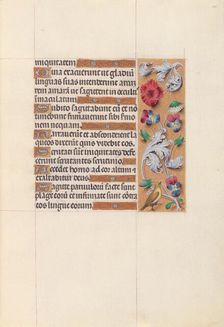 iniquitatem.
Quia exacuerunt ut gladiū
linguas suas intenderunt arcum
rem amarā ut sagittent in occul
immaculatum.
Subito sagittabunt eū et nō
timebunt firmaverunt sibi sermo
nem nequam.
Narraverūt ut absconderent la
queos dixerunt quis videbit eos.
Scrutati sūt iniquitates defe
cerunt scrutantes scrutinio.
Accedet homo ad cor altum et
exaltabitur deus.
Sagitte parvulorū facte sunt
plage eorū et infirmate sunt cōtra
eos lingue eorum.